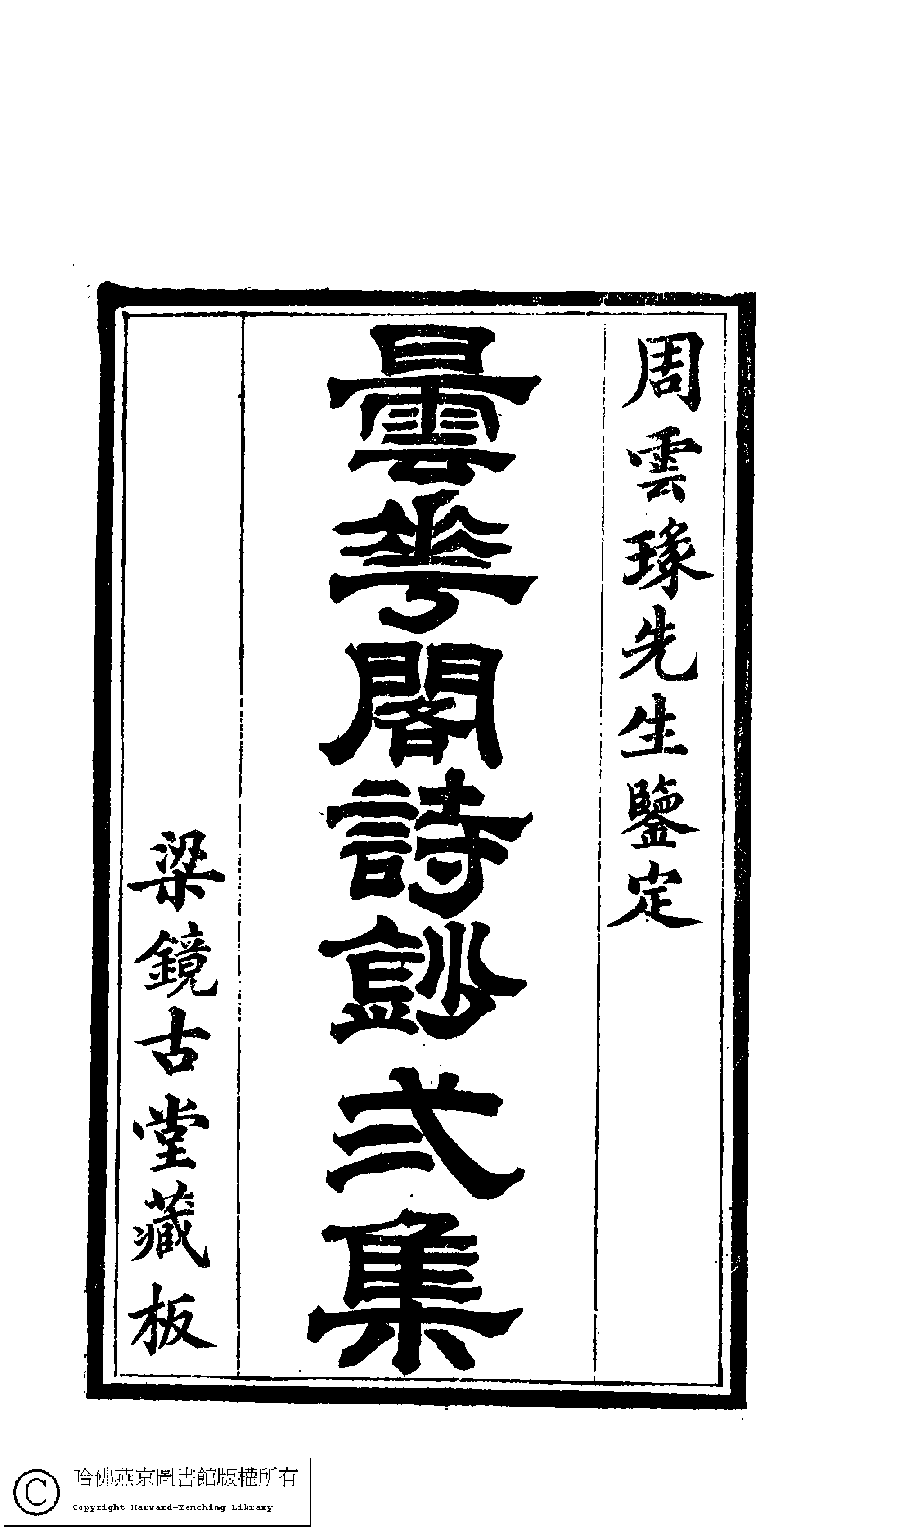 周雲瑑先生鑒定
曇華閣詩鈔弍集
梁鏡古堂藏板
哈佛燕京圖書館版權所有
Copyright Harvard-Yenching Library